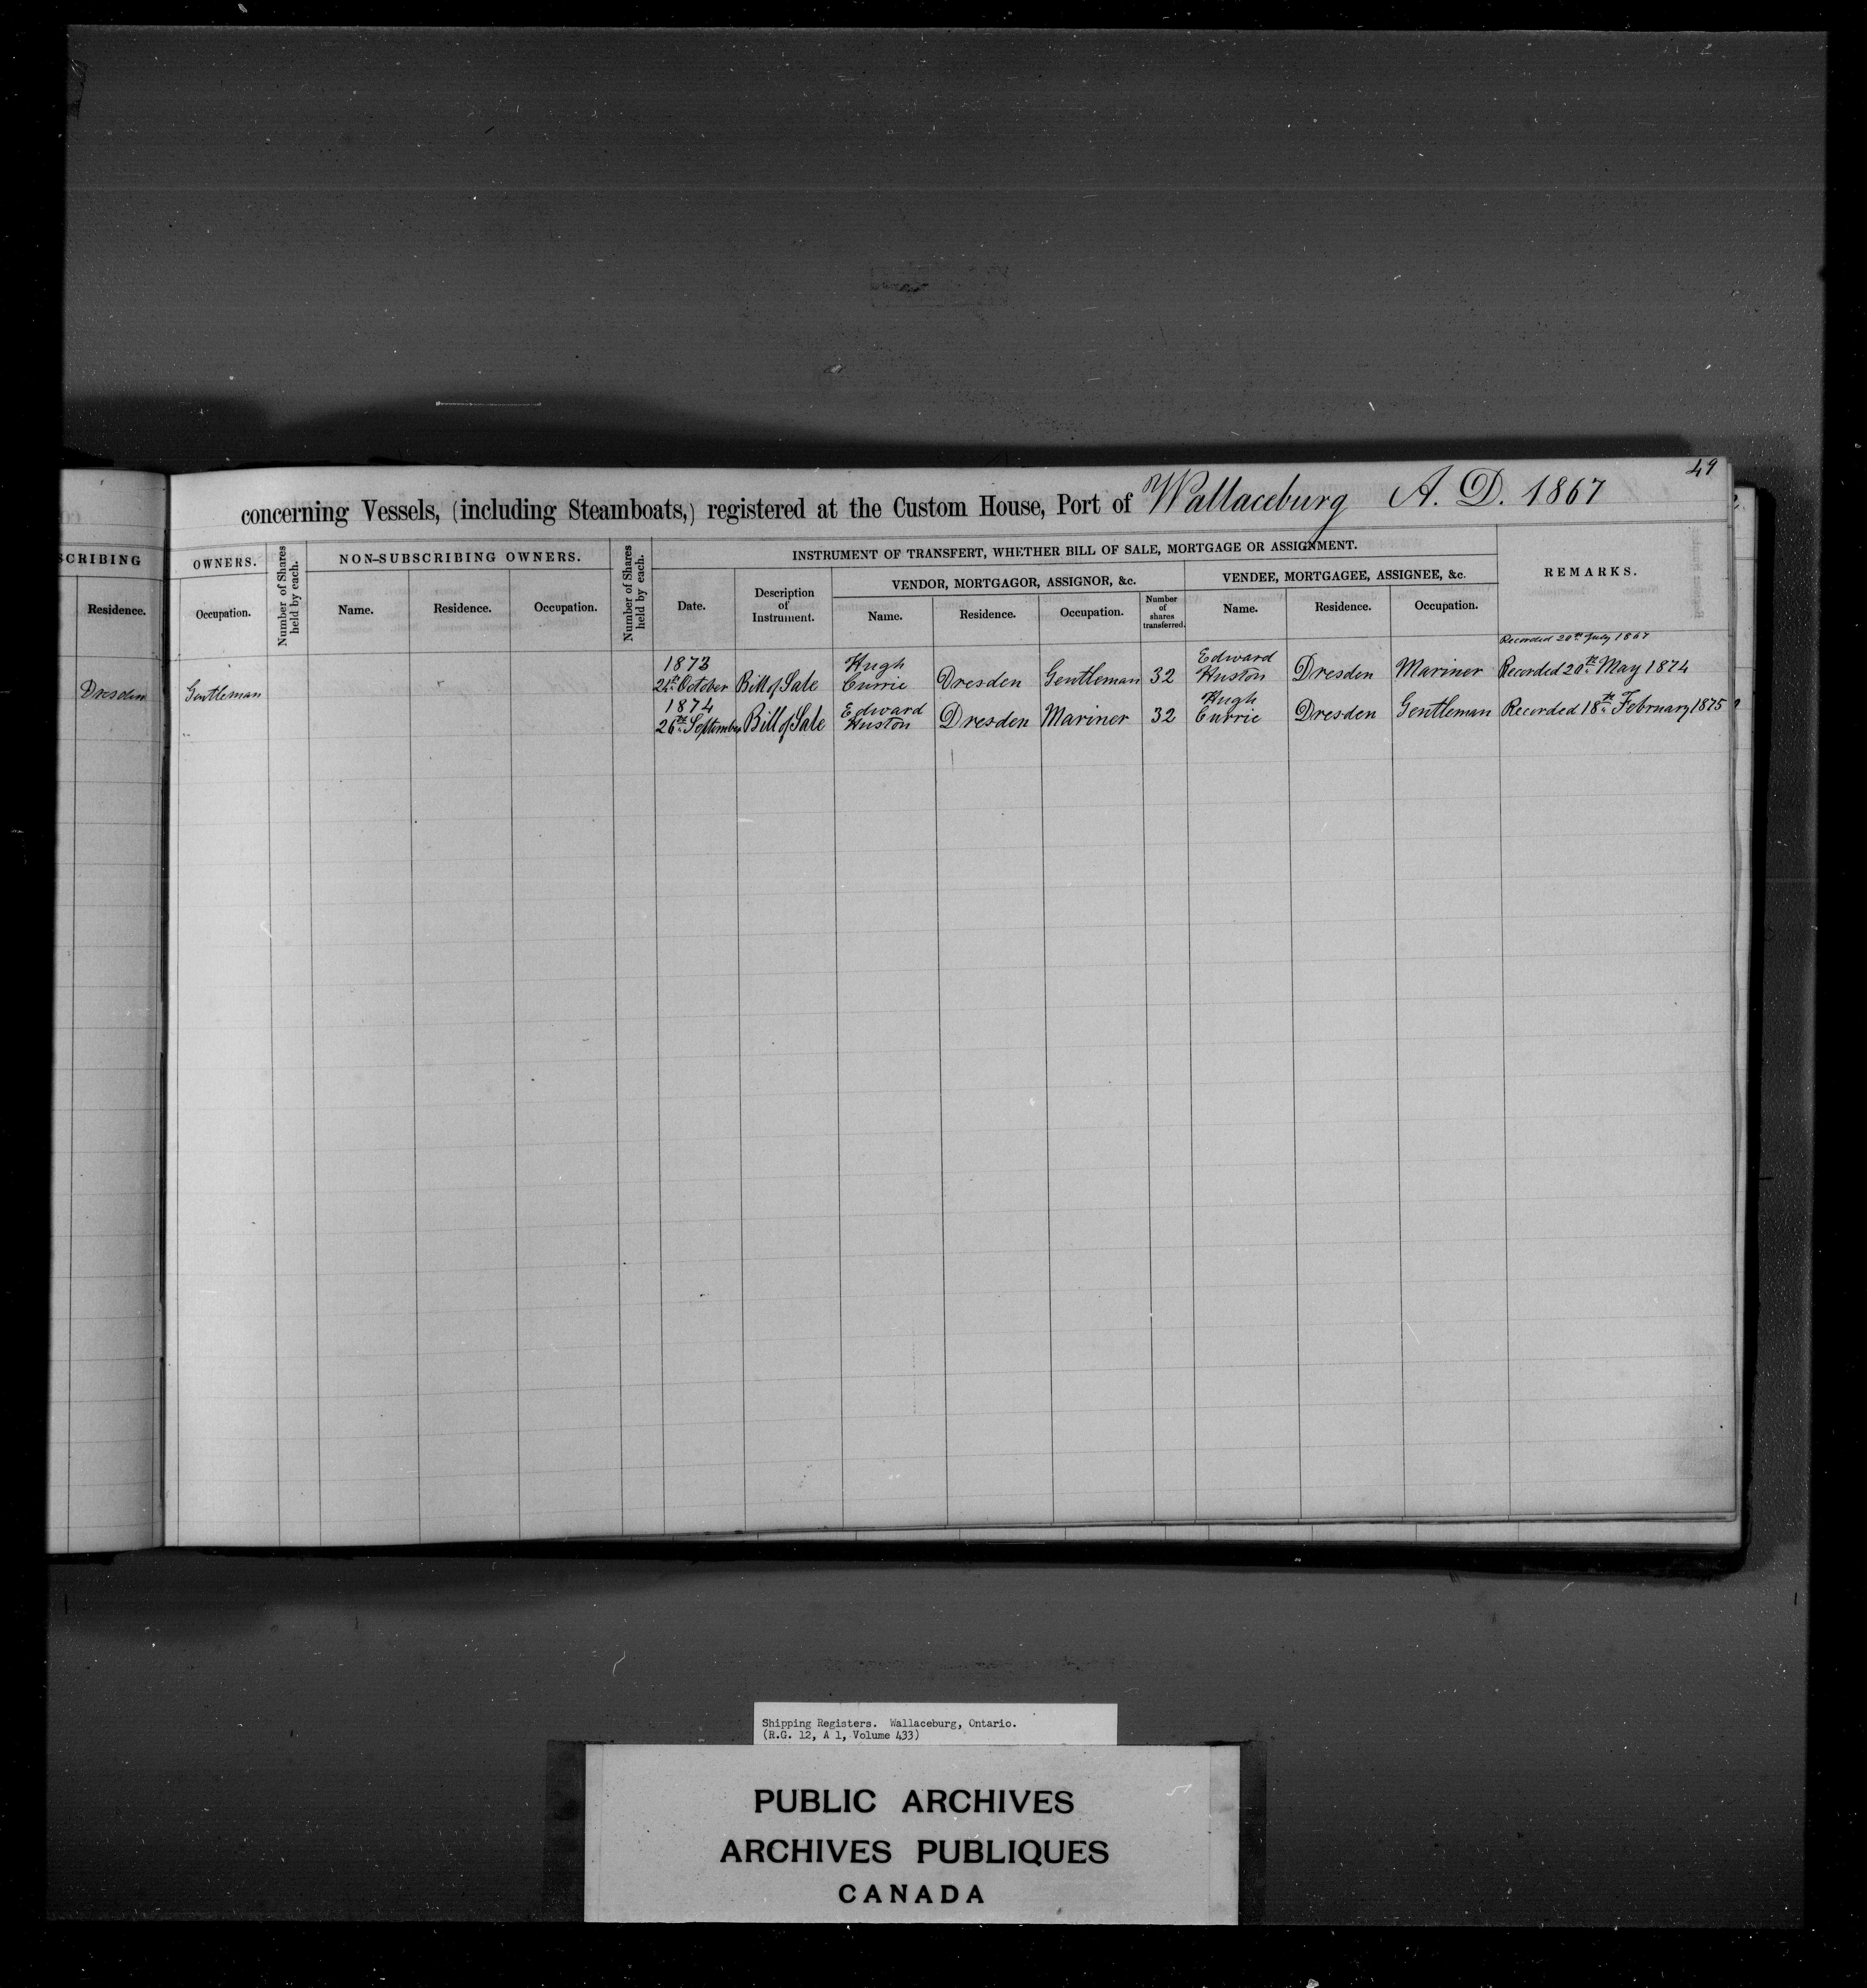 49
concerning Vessels, (including Steamboats,) registered at the Custom House, Port of Wallaceburg A. D. 1867
SCRIBING
OWNERS.
Number of Shares held by each.
NON-SUBSCRIBING OWNERS.
Number of Shares held by each.
INSTRUMENT OF TRANSFERT, WHETHER BILL OF SALE, MORTGAGE OR ASSIGNMENT.
REMARKS.
VENDOR, MORTGAGOR, ASSIGNOR, &c.
VENDEE, MORTGAGEE, ASSIGNEE, &c.
Residence.
Occupation.
Name.
Residence.
Occupation.
Date.
Description of Instrument.
Name.
Residence.
Occupation.
Number of shares transferred.
Name.
Residence.
Occupation.
Recorded 20th July 1867
Dresden Gentleman
1873
October Bill of Sale Hugh Currie Dresden Gentleman 32 Edward Huston Dresden Mariner Recorded 20th May 1874
1874
26th September Bill of Sale Edward Huston Dresden Mariner 32 Hugh Currie Dresden Gentleman Recorded 18th February 1875
Shipping Registers. Wallaceburg, Ontario.
(R.G. 12, A 1, Volume 433)
PUBLIC ARCHIVES
ARCHIVES PUBLIQUES
CANADA